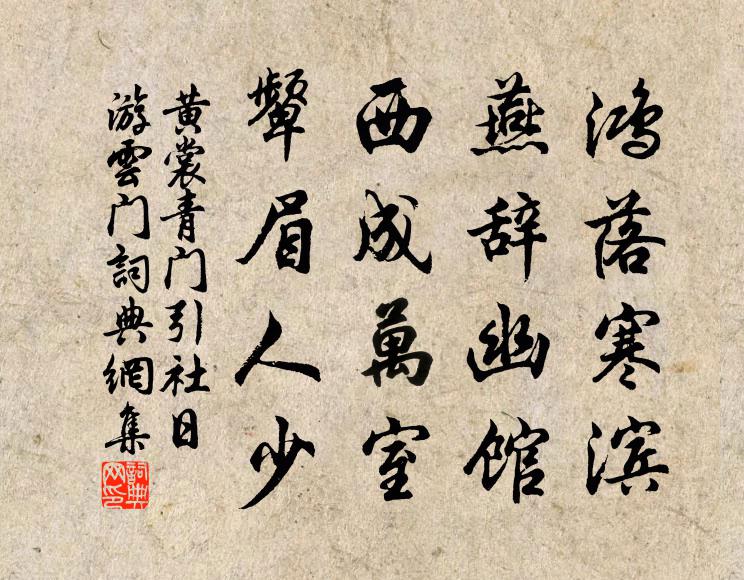 鸿落寒滨
燕辞幽馆
西成萬室
颦眉人少
黄裳青门引社日
游雲门詞典網集
詞典网印